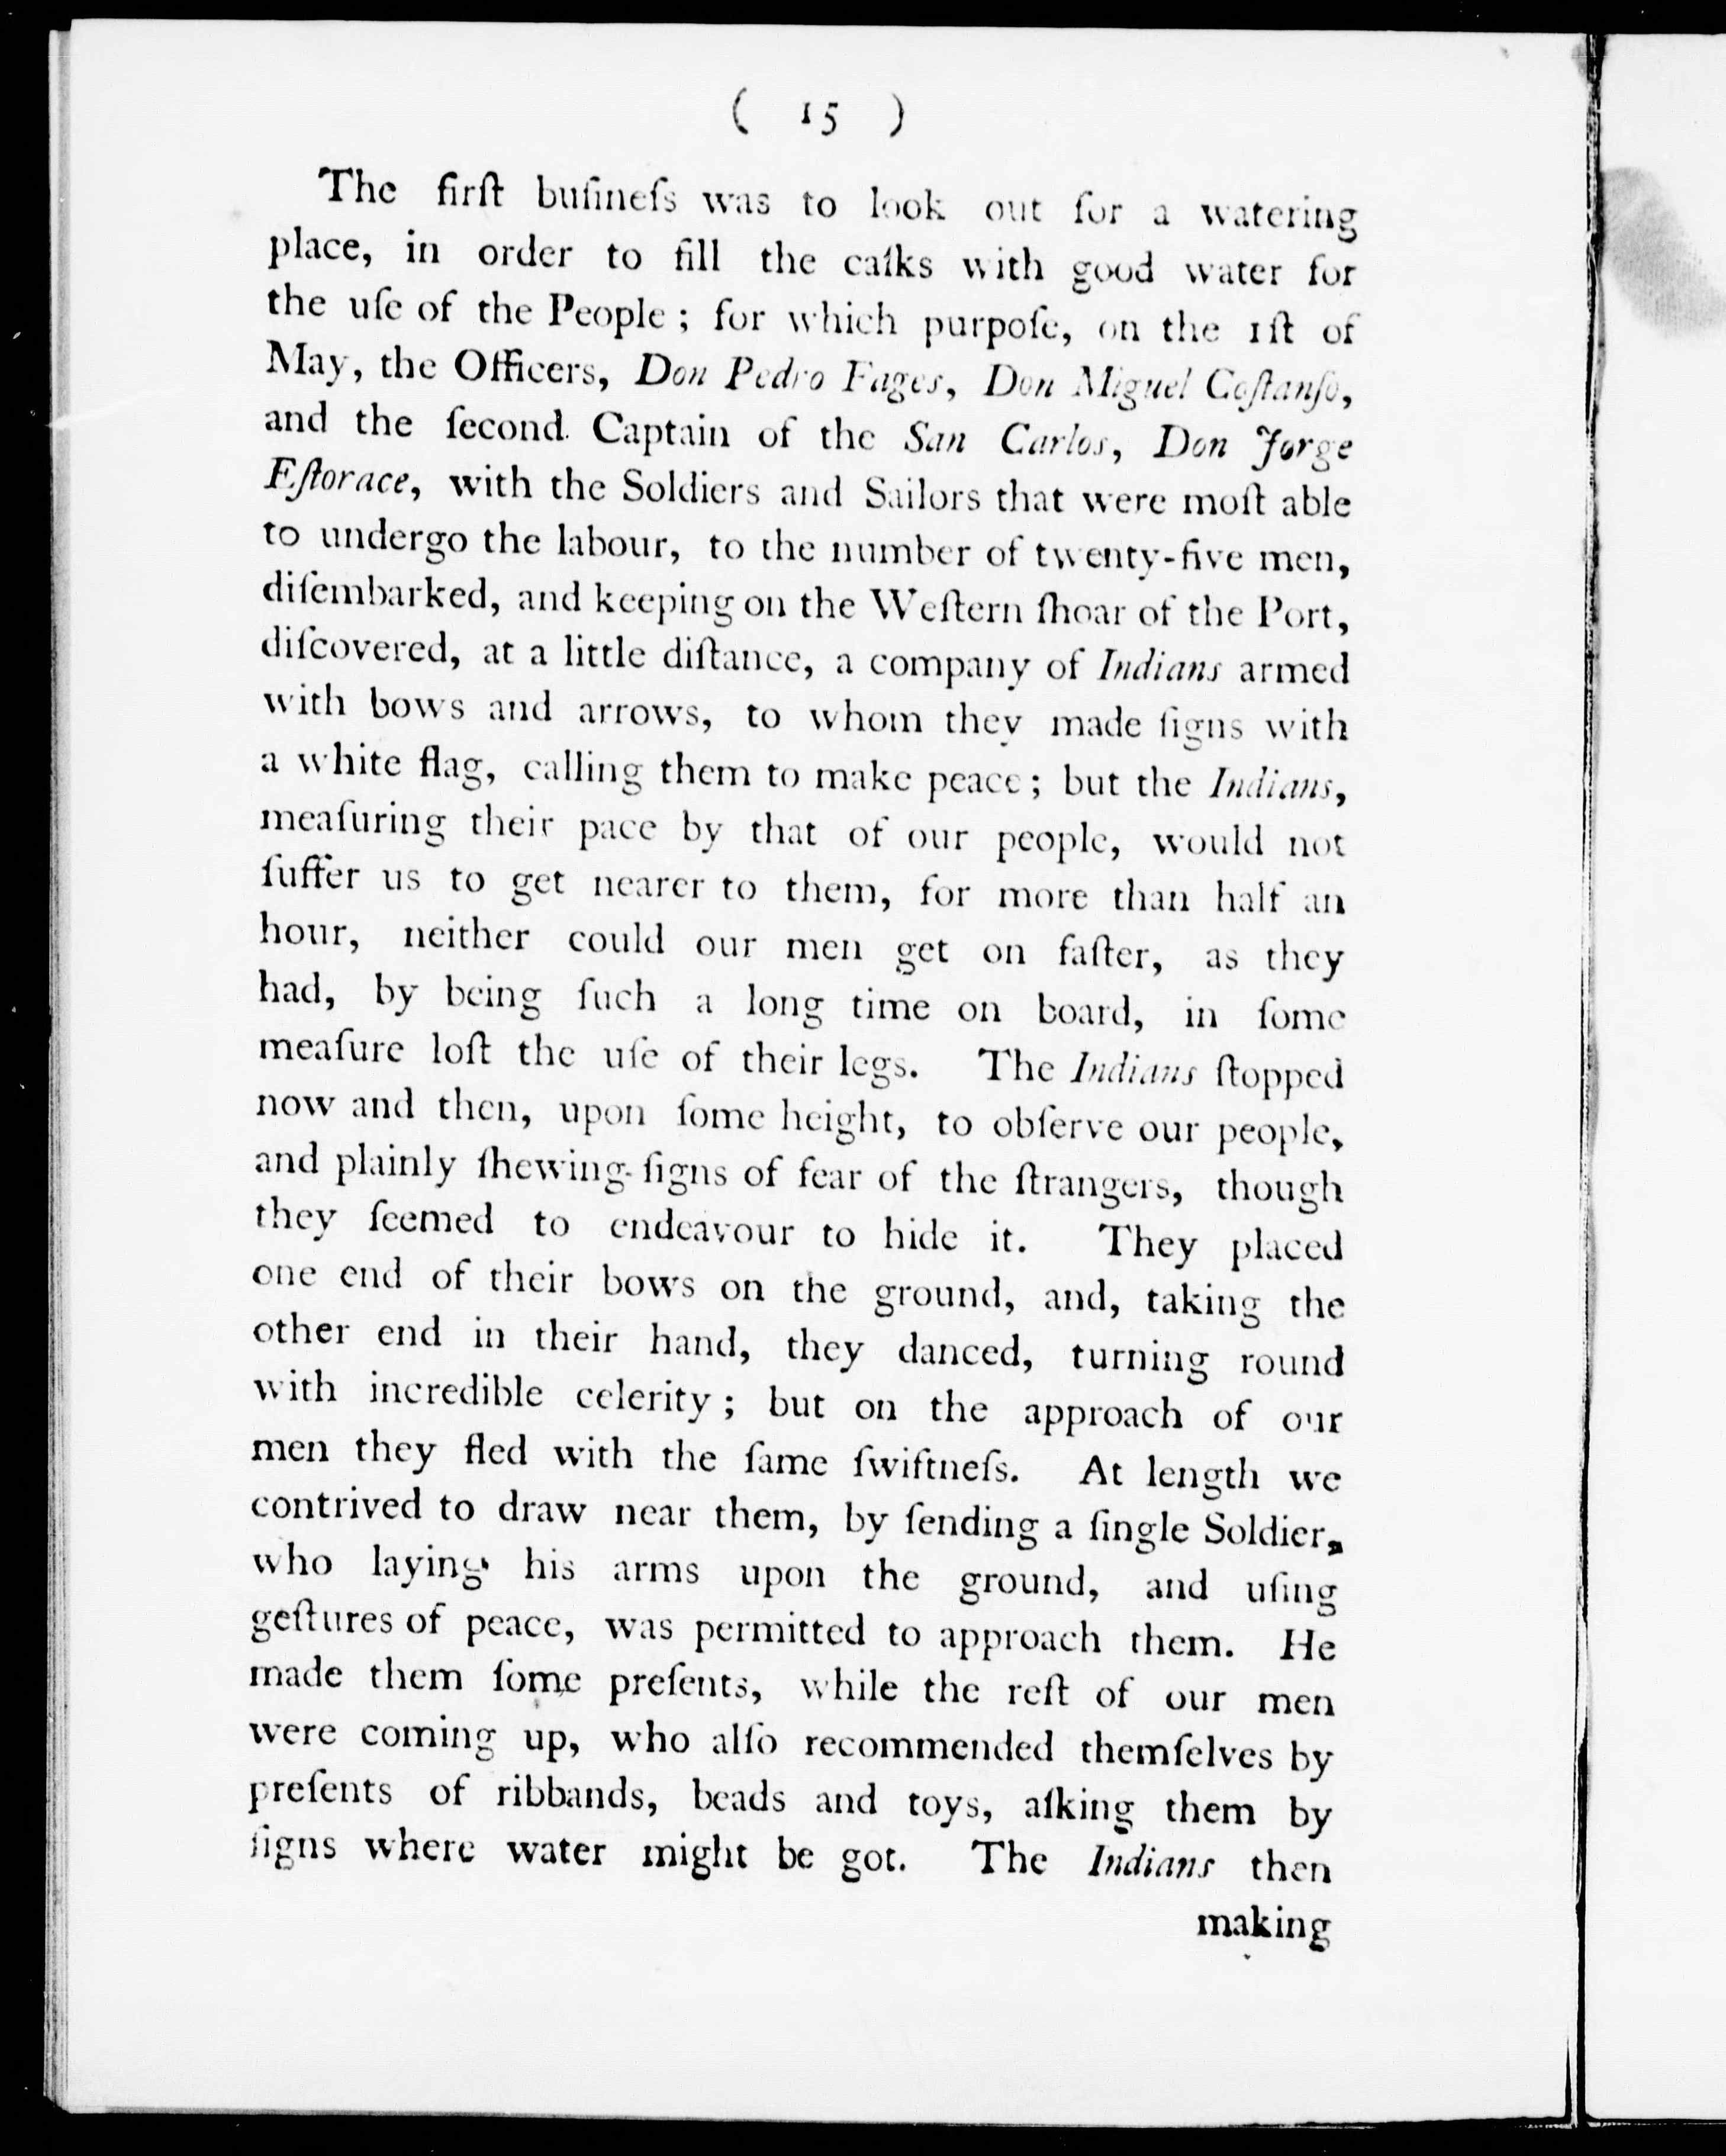 ( 15 )
The firſt buſineſs was to look out for a watering
place, in order to fill the caſks with good water for
the uſe of the People; for which purpoſe, on the 1ſt of
May, the Officers, Don Pedro Fages, Don Miguel Coſtanſo,
and the ſecond Captain of the San Carlos, Don Jorge
Eſtorace, with the Soldiers and Sailors that were moſt able
to undergo the labour, to the number of twenty-five men,
diſembarked, and keeping on the Weſtern ſhoar of the Port,
diſcovered, at a little diſtance, a company of Indians armed
with bows and arrows, to whom they made ſigns with
a white flag, calling them to make peace; but the Indians,
meaſuring their pace by that of our people, would not
ſuffer us to get nearer to them, for more than half an
hour, neither could our men get on faſter, as they
had, by being ſuch a long time on board, in ſome
meaſure loſt the uſe of their legs. The Indians ſtopped
now and then, upon ſome height, to obſerve our people,
and plainly ſhewing ſigns of fear of the ſtrangers, though
they ſeemed to endeavour to hide it. They placed
one end of their bows on the ground, and, taking the
other end in their hand, they danced, turning round
with incredible celerity; but on the approach of our
men they fled with the ſame ſwiftneſs. At length we
contrived to draw near them, by ſending a ſingle Soldier,
who laying his arms upon the ground, and uſing
geſtures of peace, was permitted to approach them. He
made them ſome preſents, while the reſt of our men
were coming up, who alſo recommended themſelves by
preſents of ribbands, beads and toys, aſking them by
ſigns where water might be got. The Indians then
making